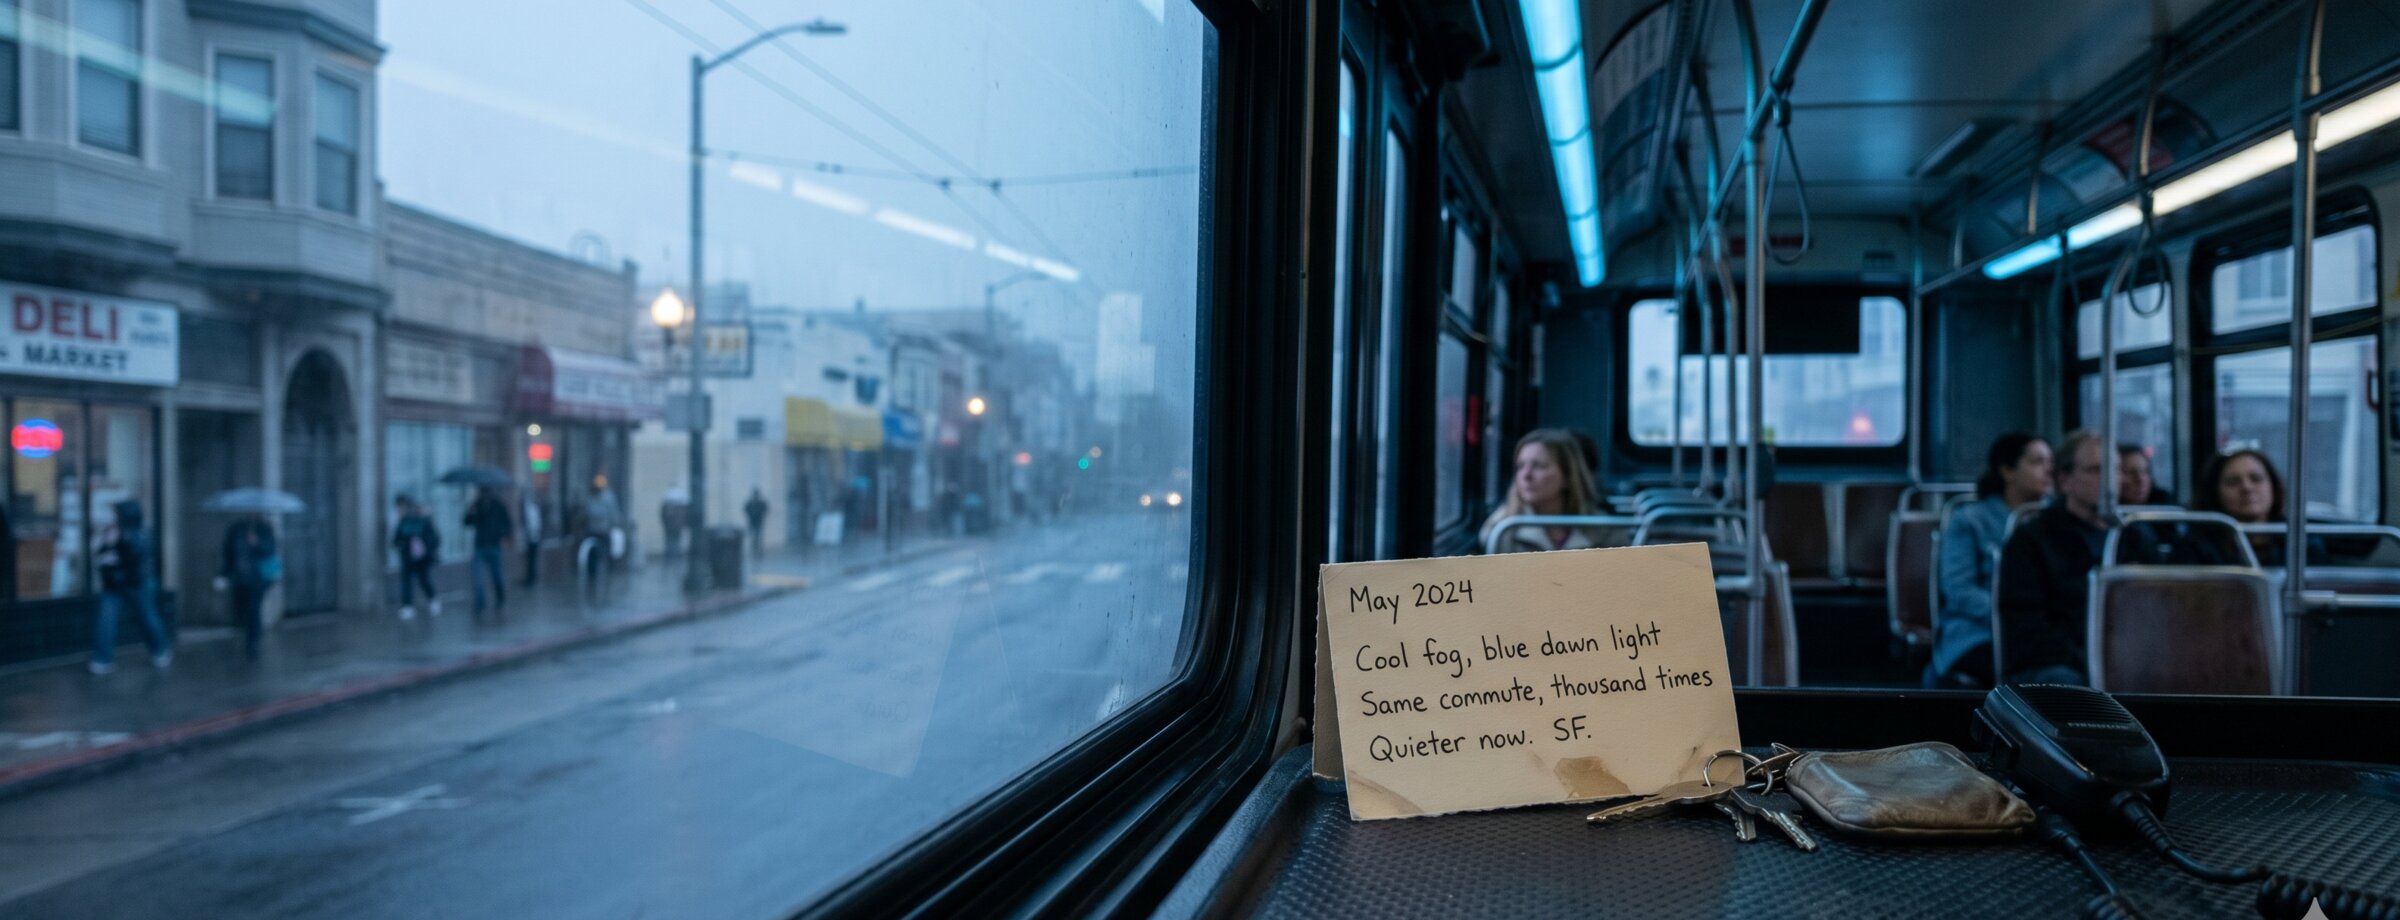 DELI
MARKET
May 2024
Cool fog, blue dawn light
Same commute, thousand times
Quieter now. SF.